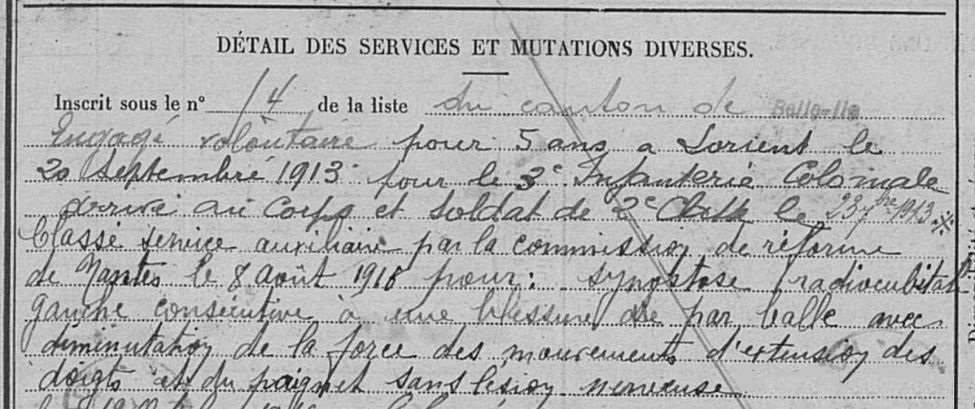 DÉTAIL DES SERVICES ET MUTATIONS DIVERSES.
Inscrit sous le n° 14 de la liste du canton de Belle-Ile
Engagé volontaire pour 5 ans a Lorient le
20 Septembre 1913 pour le 3e Infanterie Coloniale
Arrivé au Corps et soldat de 2e Classe le 23 7bre 1913 ※
Classé service auxiliaire par la commission de réforme
de Nantes le 8 Août 1918 pour: synostose radiocubitale
gauche consécutive à une blessure de par balle avec
diminutation de la force des mouvements d'extension des
doigts et du poignet sans lésion nerveuse